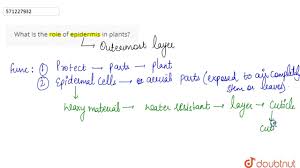 571227932
What is the role of epidermis in plants?
Outermost layer
Func: ① Protect → Parts → Plant
② Epidermal cells → aerial parts (exposed to air completely
stem or leaves)
Waxy material → water resistant → layer → Cuticle
Cuti
doubtnut